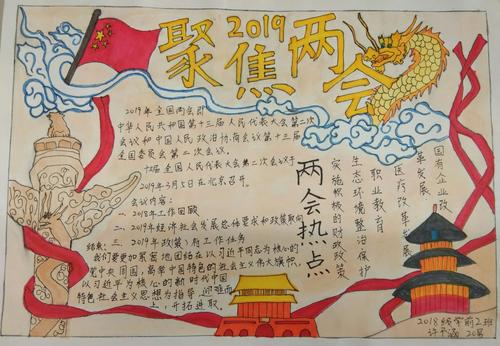 聚焦
2019
两会
2019年全国两会即
中华人民共和国第十三届人民代表大会第二次
会议和中国人民政治协商会议第十三届
全国委员会第二次会议。
十三届全国人民代表大会第二次会议于
2019年3月5日在北京召开。
会议内容：
一、2018年工作回顾
二、2019年经济社会发展总体要求和政策取向
三、2019年政府工作任务
结束：
我们要更加紧密地团结在以习近平同志为核心的
党中央周围，高举中国特色的社会主义伟大旗帜，
以习近平为核心的新时代中国
特色社会主义思想为指导，迎难而
上，开拓进取。
两会热点
国有企业改
革发展
医疗改革发展
职业教育
生态环境整治保护
实施积极的财政政策
2018级学前2班
许 涵 20号